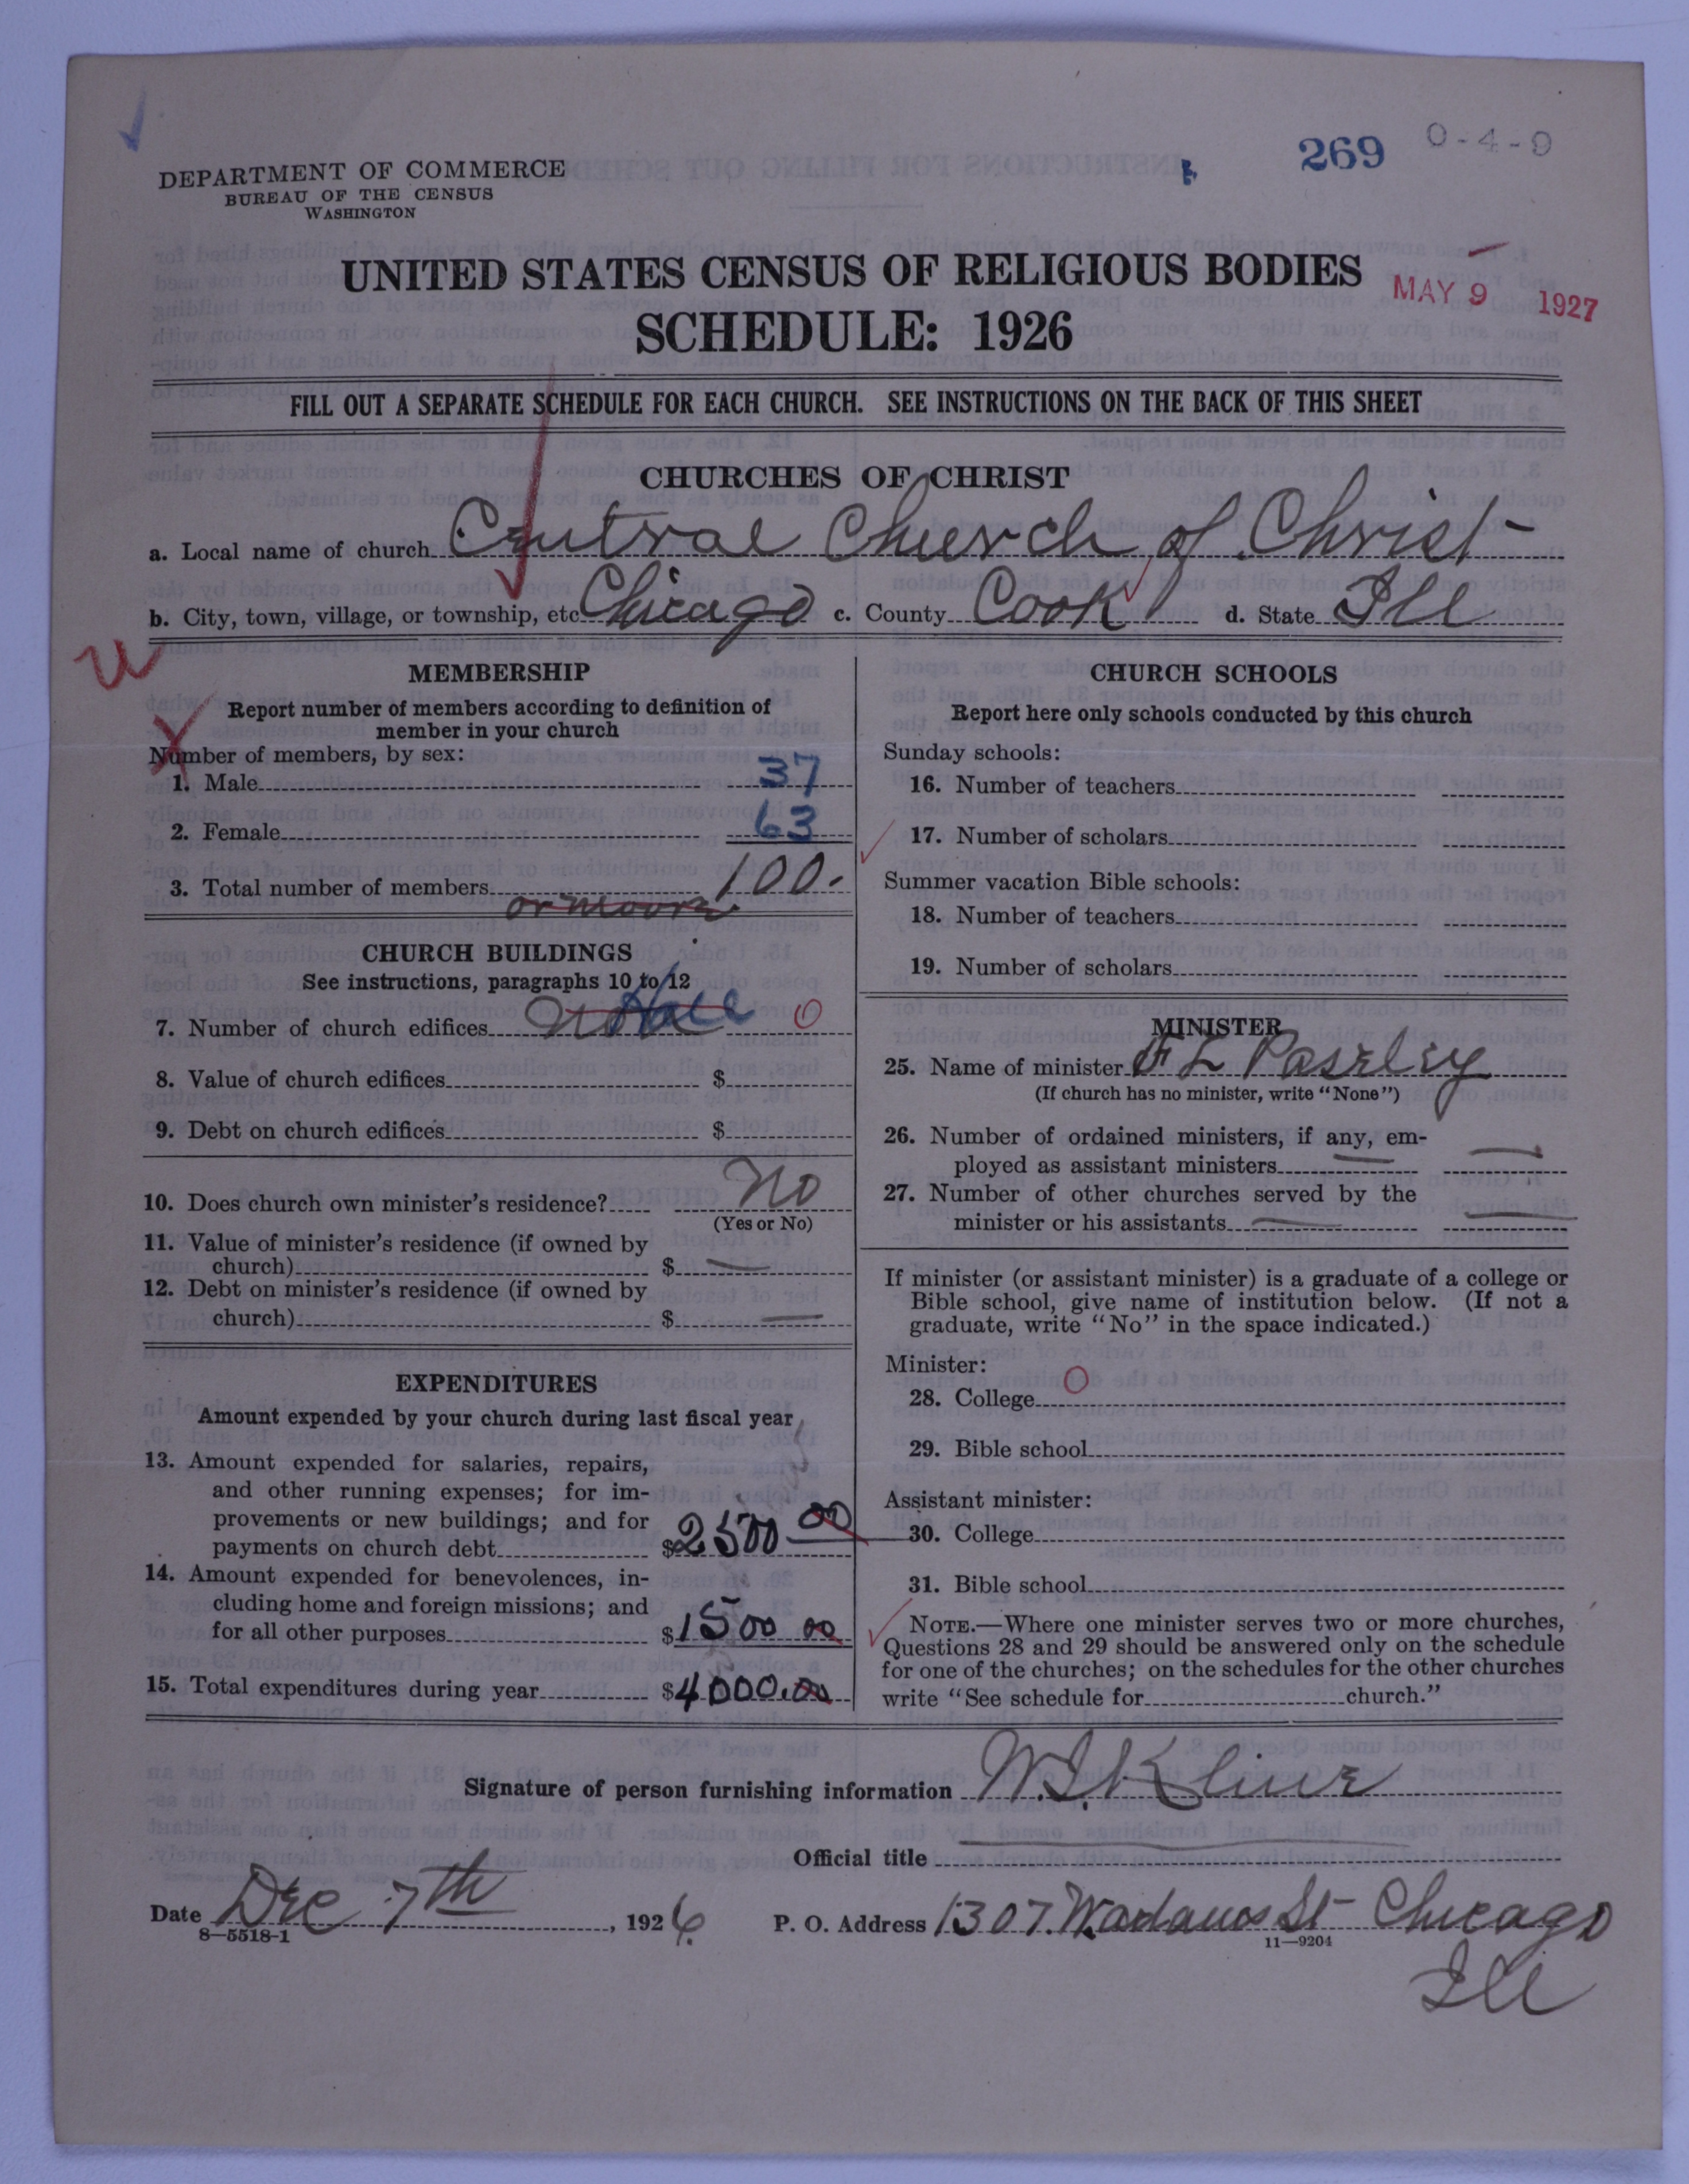 269 0-4-9
DEPARTMENT OF COMMERCE
BUREAU OF THE CENSUS
WASHINGTON
UNITED STATES CENSUS OF RELIGIOUS BODIES
SCHEDULE: 1926
MAY 9 1927
FILL OUT A SEPARATE SCHEDULE FOR EACH CHURCH. SEE INSTRUCTIONS ON THE BACK OF THIS SHEET
CHURCHES OF CHRIST
a. Local name of church Central Church of Christ
b. City, town, village, or township, etc. Chicago c. County Cook d. State Ill
MEMBERSHIP
Report number of members according to definition of
member in your church
Number of members, by sex:
1. Male 37
2. Female 63
3. Total number of members 100.
or more
CHURCH BUILDINGS
See instructions, paragraphs 10 to 12
7. Number of church edifices Hall 0
8. Value of church edifices $
9. Debt on church edifices $
10. Does church own minister's residence? No
(Yes or No)
11. Value of minister's residence (if owned by
church) $ —
12. Debt on minister's residence (if owned by
church) $ —
EXPENDITURES
Amount expended by your church during last fiscal year
13. Amount expended for salaries, repairs,
and other running expenses; for im-
provements or new buildings; and for
payments on church debt $2500 00
14. Amount expended for benevolences, in-
cluding home and foreign missions; and
for all other purposes $1500 00
15. Total expenditures during year $4000.00
CHURCH SCHOOLS
Report here only schools conducted by this church
Sunday schools:
16. Number of teachers
17. Number of scholars
Summer vacation Bible schools:
18. Number of teachers
19. Number of scholars
MINISTER
25. Name of minister F L Paseley
(If church has no minister, write "None")
26. Number of ordained ministers, if any, em-
ployed as assistant ministers — —
27. Number of other churches served by the
minister or his assistants — —
If minister (or assistant minister) is a graduate of a college or
Bible school, give name of institution below. (If not a
graduate, write "No" in the space indicated.)
Minister:
28. College 0
29. Bible school
Assistant minister:
30. College
31. Bible school
NOTE.—Where one minister serves two or more churches,
Questions 28 and 29 should be answered only on the schedule
for one of the churches; on the schedules for the other churches
write "See schedule for church."
Signature of person furnishing information W. S. Kline
Official title
Date Dec 7th, 1926. P. O. Address 1307 St Chicago
8—5518-1 11—9204
Ill